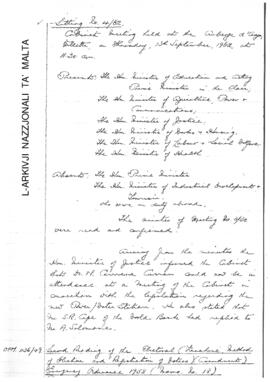 Sitting No. 4/62.
Cabinet Meeting held at the Auberge d'Aragon,
Valletta, on Thursday, 13th September, 1962, at
11.30 am.
Present: The Hon. Minister of Education and Acting
Prime Minister in the Chair,
The Hon. Minister of Agriculture, Power &
Communications.
The Hon. Minister of Justice.
The Hon. Minister of Works & Housing.
The Hon. Minister of Labour & Social Welfare
The Hon. Minister of Health
Absent: The Hon. Prime Minister
The Hon. Minister of Industrial Development &
Tourism
who were on duty abroad.
The minutes of Meeting No. 3/62
were read and confirmed.
Arising from the minutes the
Hon. Minister of Justice informed the Cabinet
that Dr. H. could now be in
attendance at a Meeting of the Cabinet in
connection with the legislation regarding the
new Power/Water Station. He also stated that
Mr. S.R. of the Gold Bank had replied to
Mr. A.
OPM 036/49 Second Reading of the Electoral (Franchise, Method
of Election and Registration of Voters) (Amendment)
Emergency Ordinance 1962 (Memo. No. 18)
L-ARKIVJI NAZZJONALI TA' MALTA